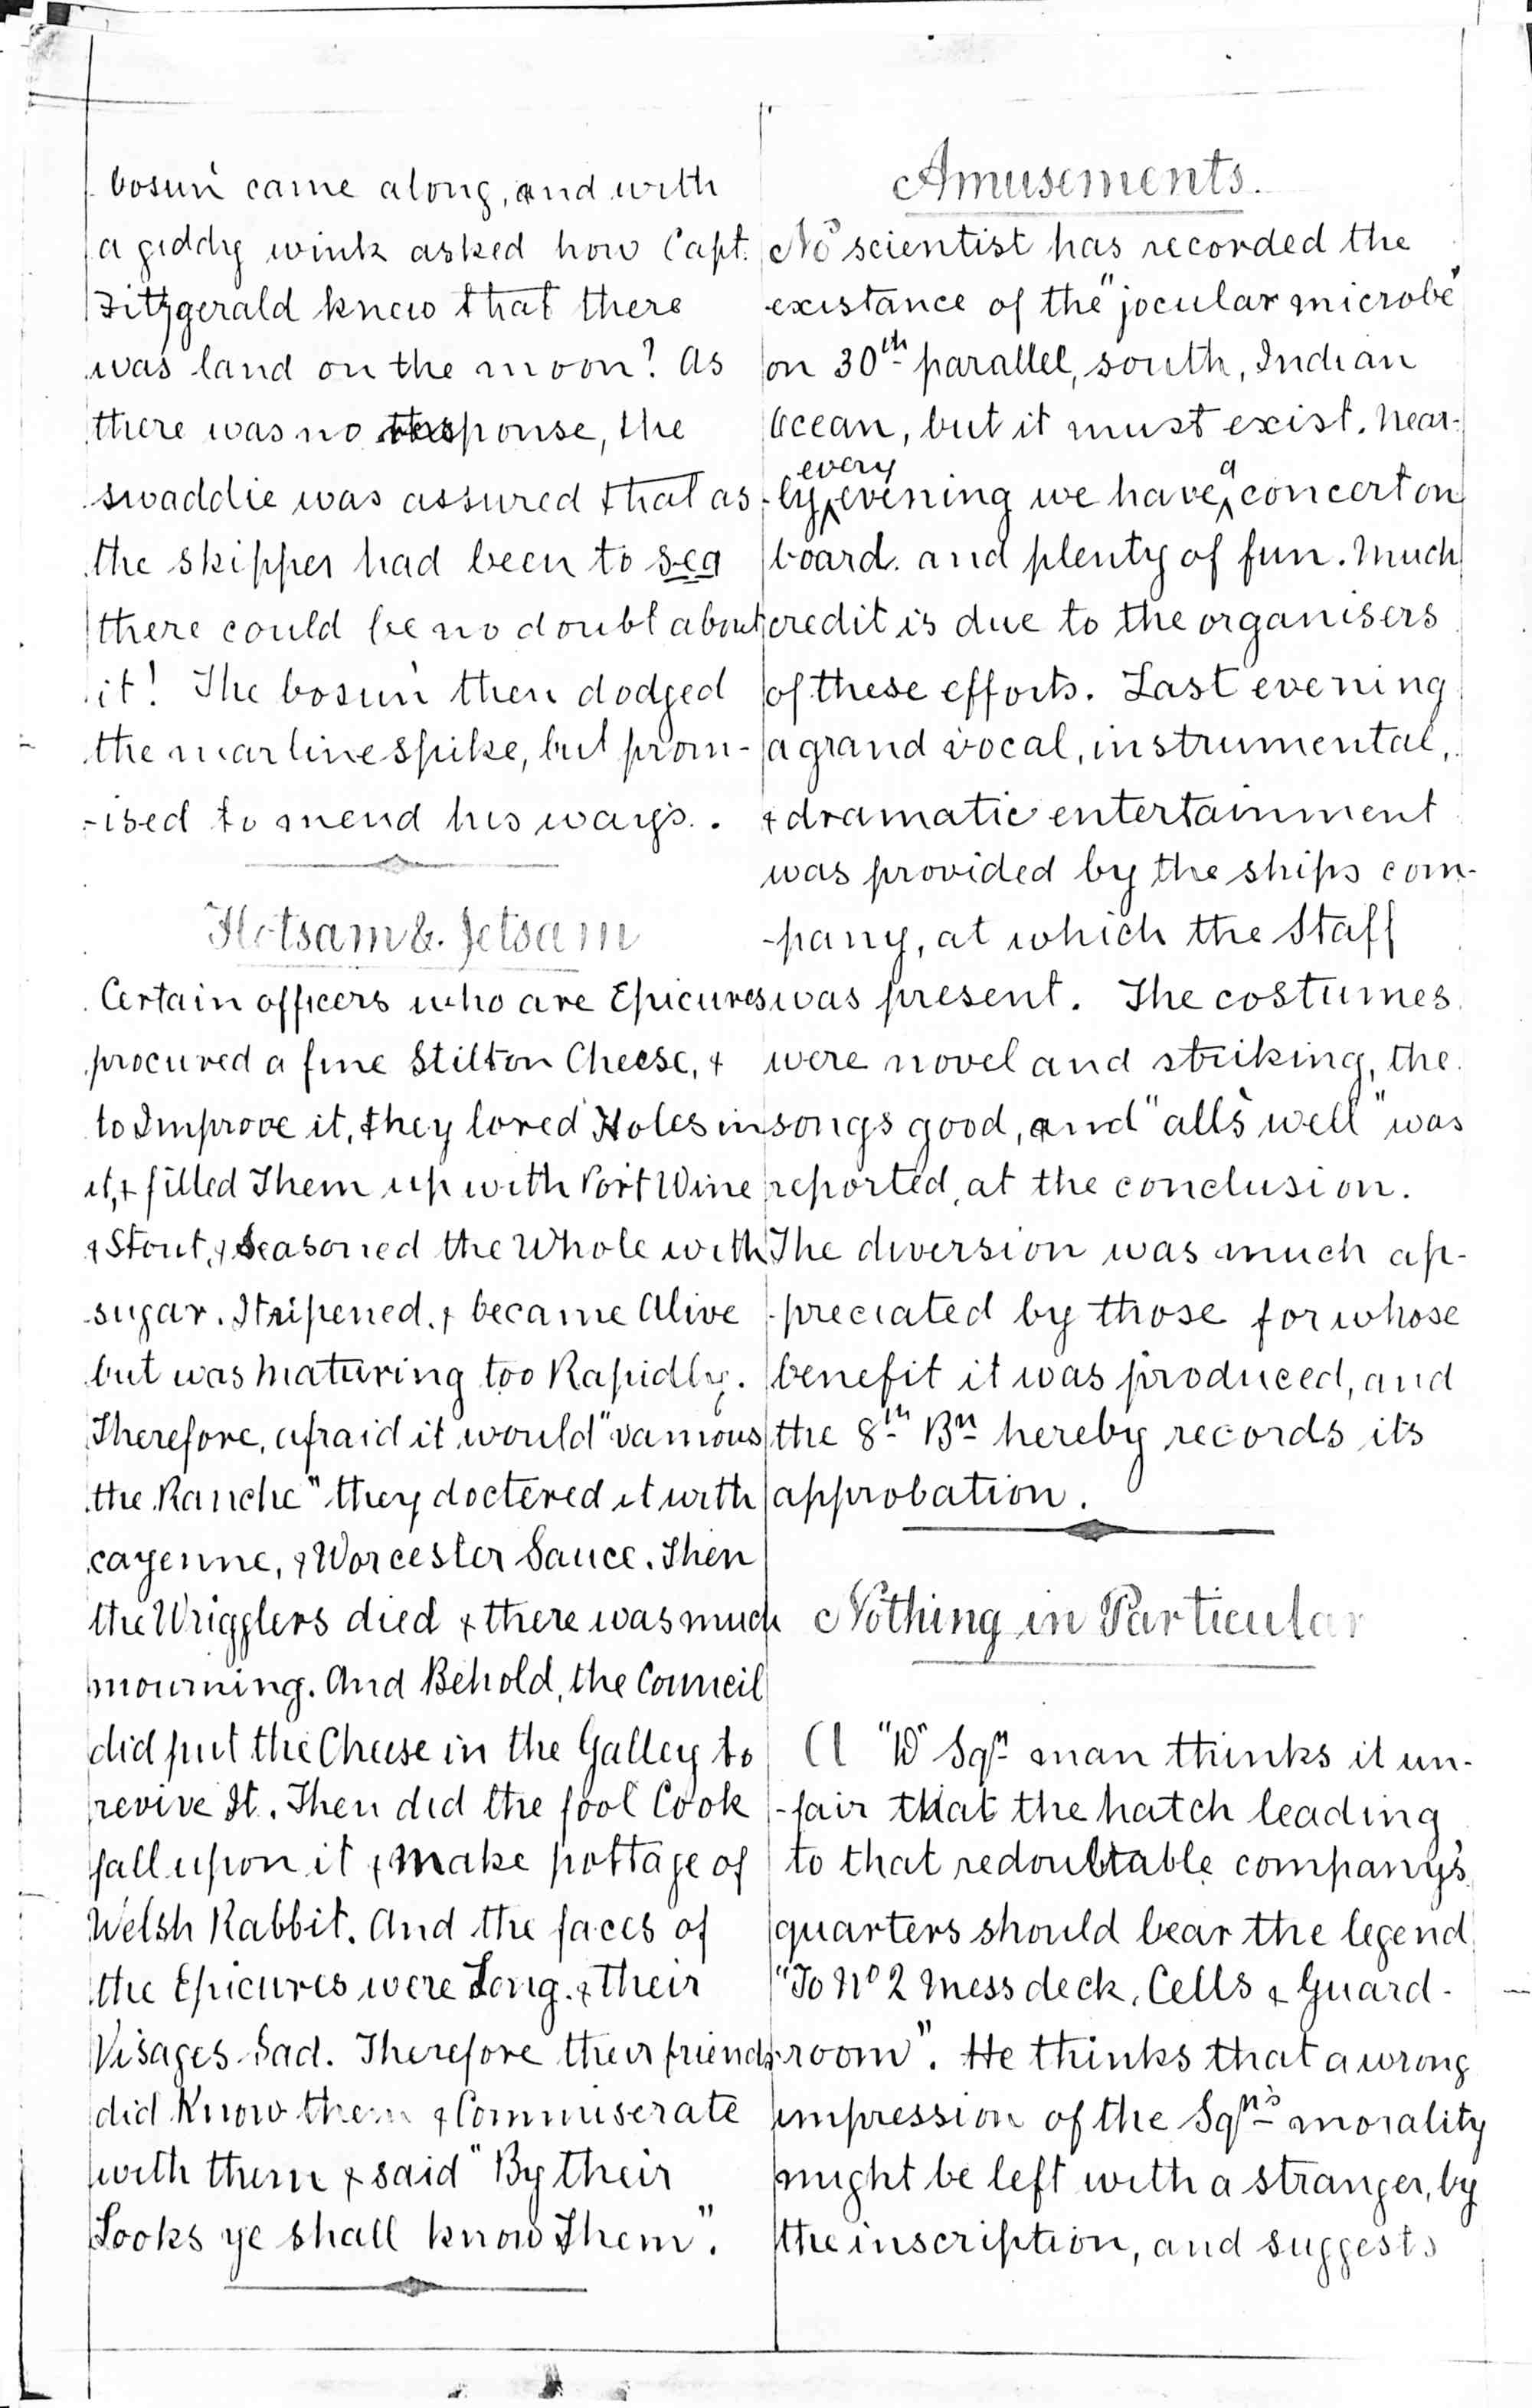 bosun' came along, and with
a giddy wink asked how Capt.
Fitzgerald knew that there
was land on the moon? As
there was no response, the
swaddie was assured that as
the skipper had been to sea
there could be no doubt about
it! The bosun' then dodged
the marlinespike, but prom-
-ised to mend his ways.
Flotsam & Jetsam
Certain officers who are Epicures
procured a fine Stilton Cheese, &
to Improve it, they bored Holes in
it, & filled Them up with Port Wine
& Stout, & Seasoned the Whole with
sugar. It ripened, & became Alive
but was Maturing too Rapidly.
Therefore, afraid it would "vamous
the Ranche" they doctered it with
cayenne, & Worcester Sauce. Then
the Wrigglers died & there was much
mourning. And Behold, the Council
did put the Cheese in the Galley to
revive It. Then did the fool Cook
fall upon it & make pottage of
Welsh Rabbit. And the faces of
the Epicures were Long, & their
Visages Sad. Therefore their friends
did Know them & Commiserate
with them & said "By their
Looks ye shall know Them".
Amusements.
No scientist has recorded the
existance of the "jocular microbe"
on 30th parallel, south, Indian
Ocean, but it must exist. Near-
-ly every evening we have a concert on
board. and plenty of fun. Much
credit is due to the organisers
of these efforts. Last evening
a grand vocal, instrumental,
& dramatic entertainment
was provided by the ships com-
-pany, at which the Staff
was present. The costumes
were novel and striking, the
songs good, and "all's well" was
reported, at the conclusion.
The diversion was much ap-
-preciated by those for whose
benefit it was produced, and
the 8th Bn hereby records its
approbation.
Nothing in Particular
A "D" Sqn man thinks it un-
-fair that the hatch leading
to that redoubtable company's
quarters should bear the legend
"To No 2 Mess deck, Cells & Guard-
-room". He thinks that a wrong
impression of the Sqn's morality
might be left with a stranger, by
the inscription, and suggests